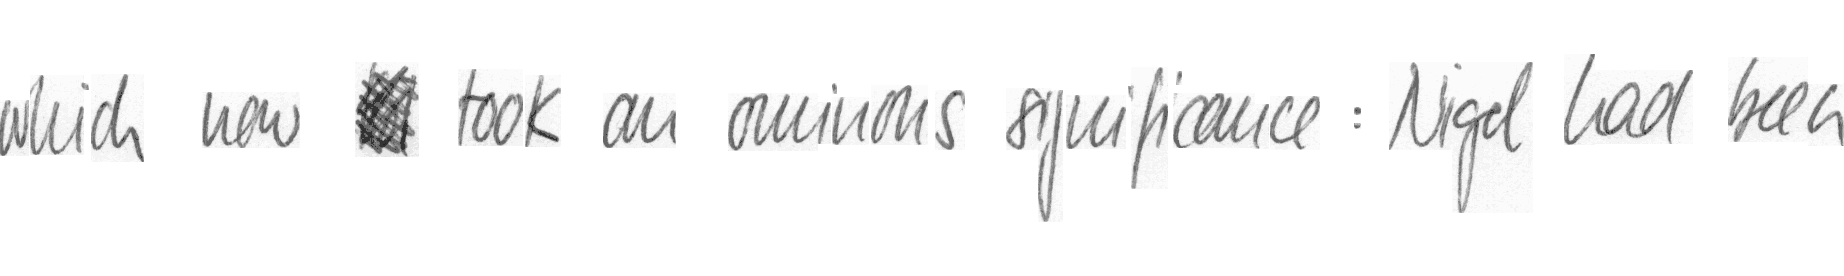 which now took an ominous significance : Nigel had been